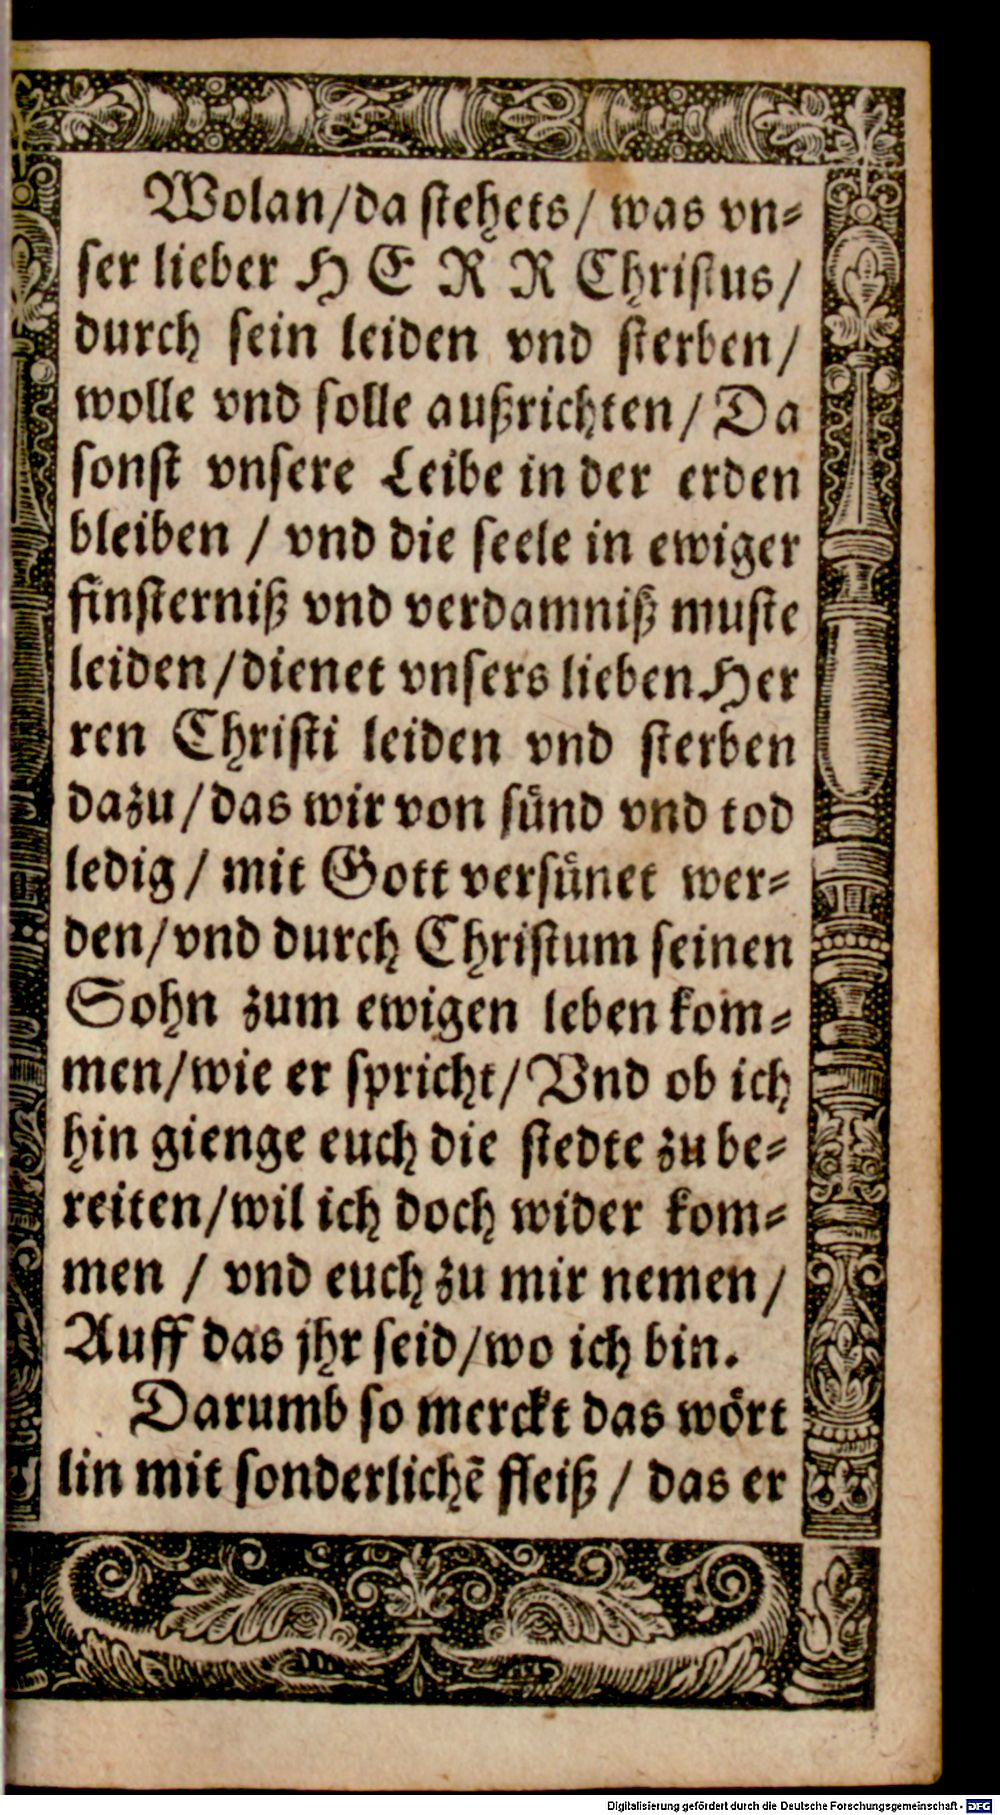 Wolan/da stehets/ was vn⸗
ser lieber H E R R Christus/
durch sein leiden vnd sterben/
wolle vnd solle außrichten/ Da
sonst vnsere Leibe in der erden
bleiben / vnd die seele in ewiger
finsterniß vnd verdamniß muste
leiden/dienet vnsers lieben Her
ren Christi leiden vnd sterben
dazu/das wir von sünd vnd tod
ledig/ mit Gott versünet wer⸗
den/vnd durch Christum seinen
Sohn zum ewigen leben kom⸗
men/wie er spricht/Vnd ob ich
hin gienge euch die stedte zu be⸗
reiten/wil ich doch wider kom⸗
men / vnd euch zu mir nemen/
Auff das jhr seid/wo ich bin.
Darumb so merckt das wört
lin mit sonderlichē fleiß / das er
Digitalisierung gefördert durch die Deutsche Forschungsgemeinschaft - DFG